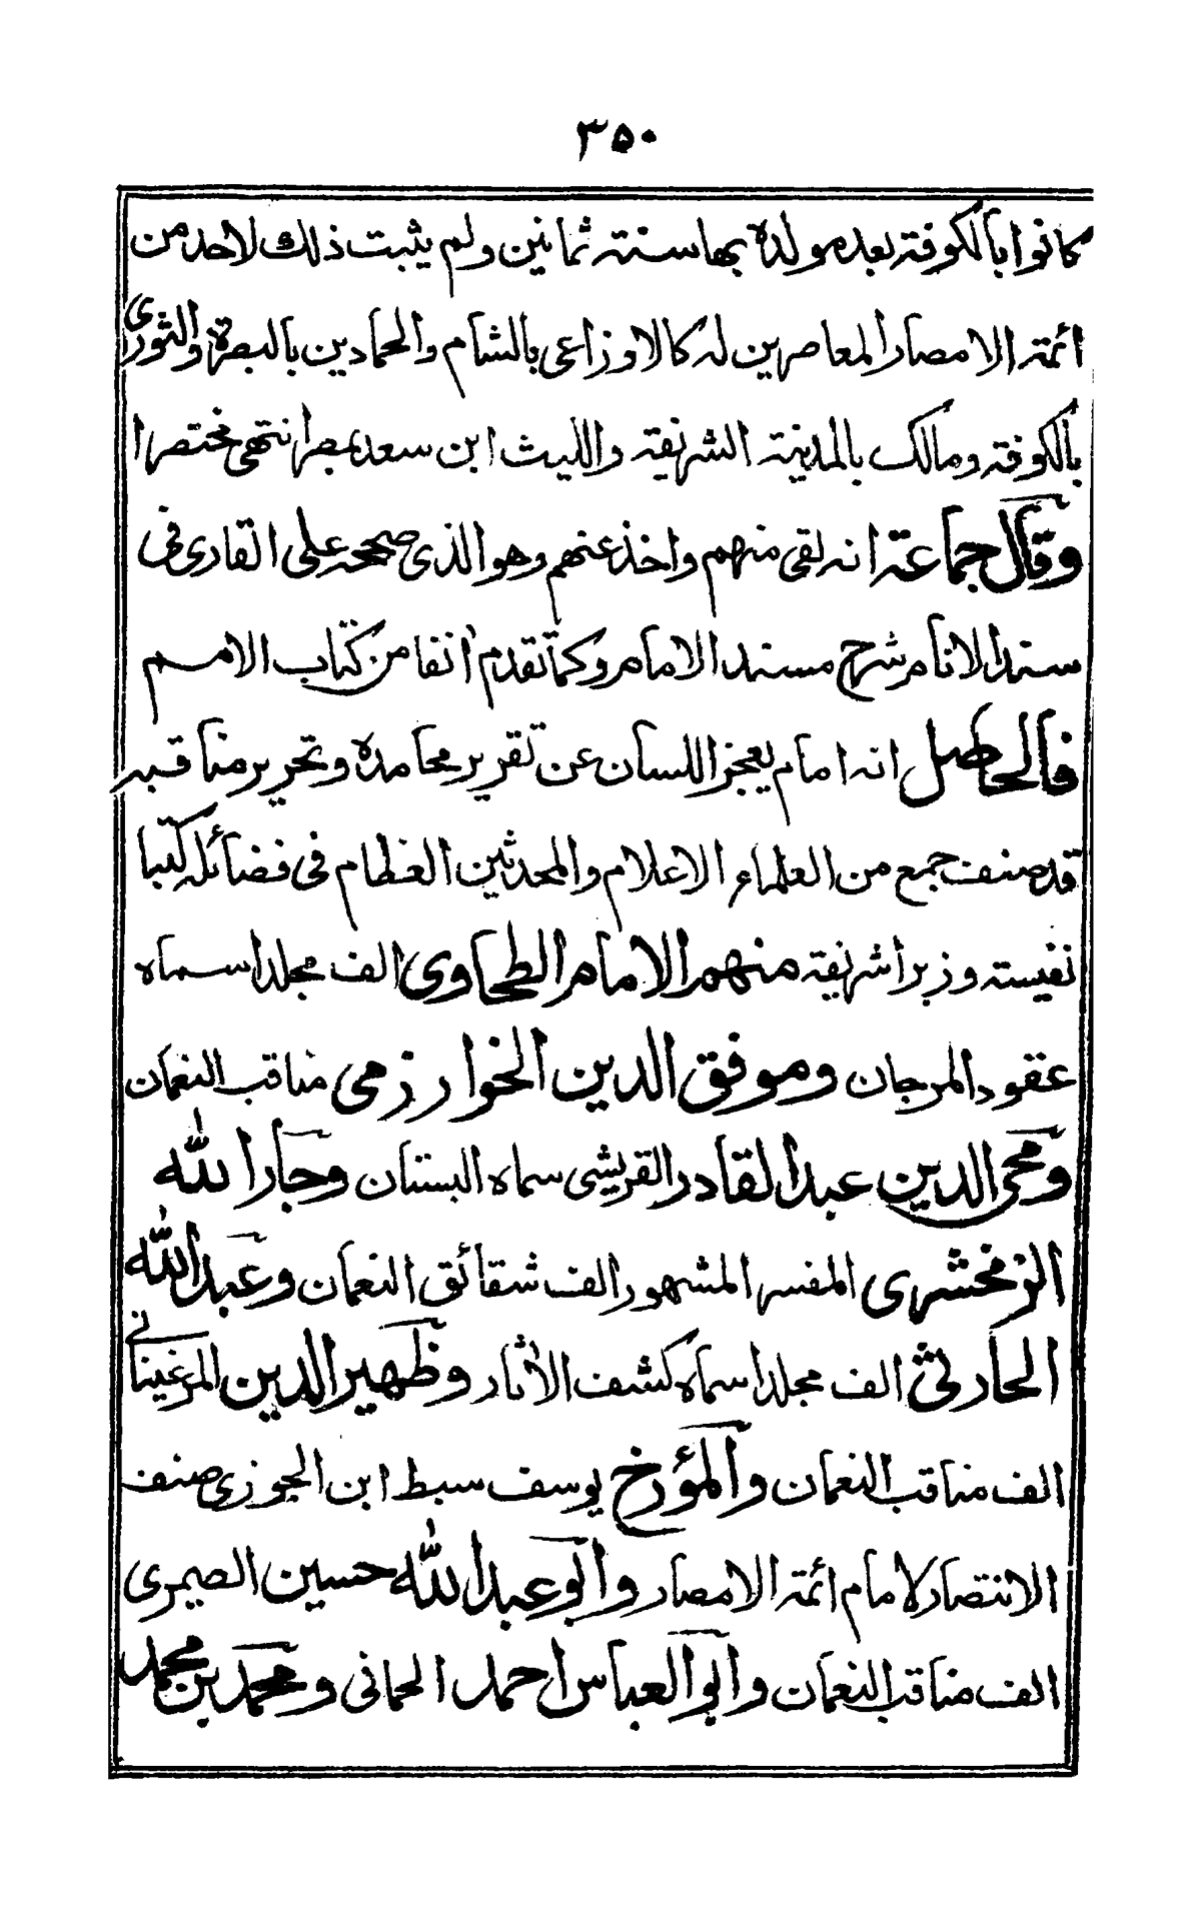 ٣٥٠
كانوا بالكوفة بعد مولده بها سنة ثمانين ولم يثبت ذلك لاحد من
ائمة الامصار المعاصرين له كالاوزاعى بالشام والحمادين بالبصرة والثورى
بالكوفة ومالك بالمدينة الشريفة والليث ابن سعد بمصر انتهى مختصرا
وقال جماعة انه لقى منهم واخذ عنهم وهو الذى صححه على القارى فى
سند الانام شرح مسند الامام وكما تقدم انفا من كتاب الامم
فالحاصل انه امام يعجز اللسان عن تقرير محامده وتحرير مناقبه
قد صنف جمع من العلماء الاعلام والمحدثين العظام فى فضائله كتبا
نفيسة وزبرا شريفة منهم الامام الطحاوى الف مجلدا سماه
عقود المرجان وموفق الدين الخوارزمى مناقب النعمان
ومحى الدين عبد القادر القريشى سماه البستان وجار الله
الزمخشرى المفسر المشهور الف شقائق النعمان وعبد الله
الحارثى الف مجلدا سماه كشف الأثار وظهير الدين المرغينانى
الف مناقب النعمان والمؤرخ يوسف سبط ابن الجوزى صنف
الانتصار لامام ائمة الامصار وابو عبد الله حسين الصيمرى
الف مناقب النعمان وابو العباس احمد الحمانى ومحمد بن محمد